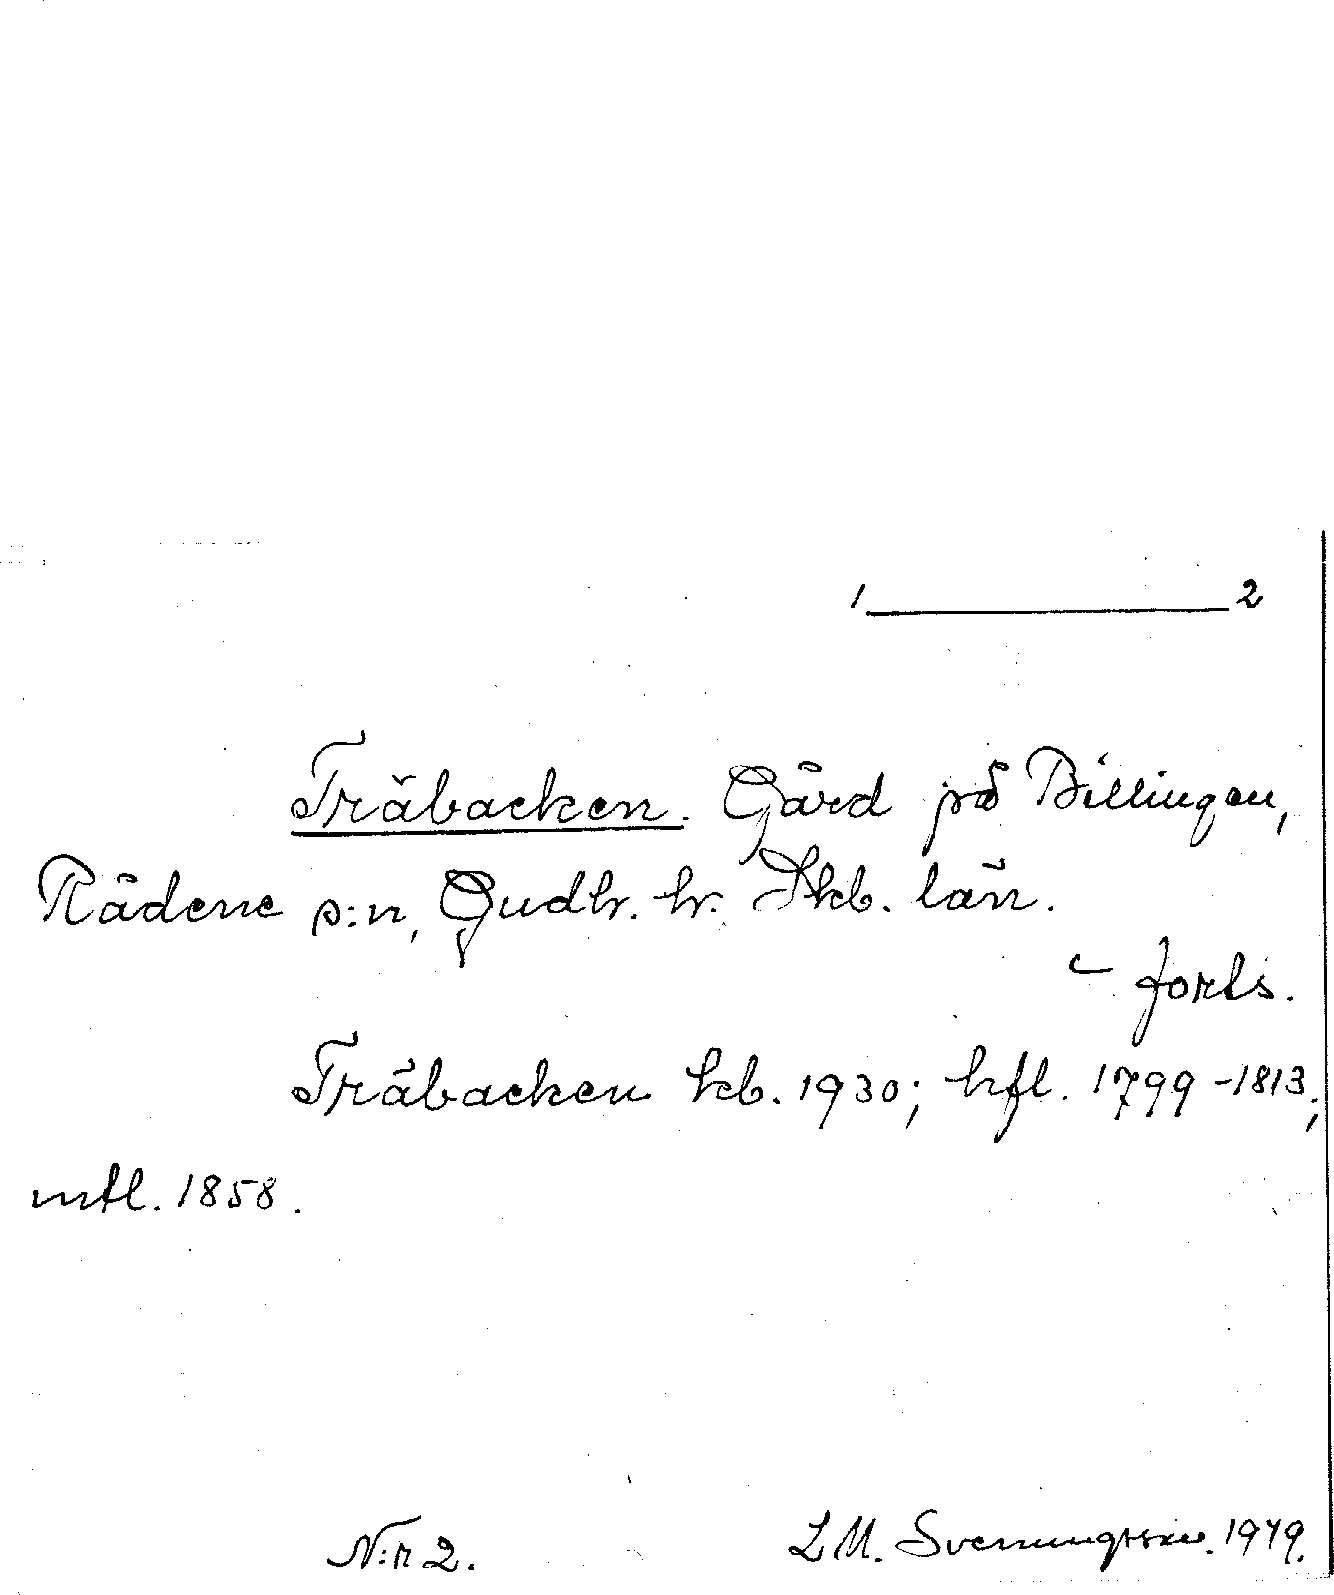 1 2
Träbacken. Gård på Billingen,
Rådene s:n, Gudh. hr. Skb. län.
forts.
Träbacken kb. 1930; hfl. 1799-1813;
mtl. 1858.
N:r 2. L M. Svenungsson. 1979.